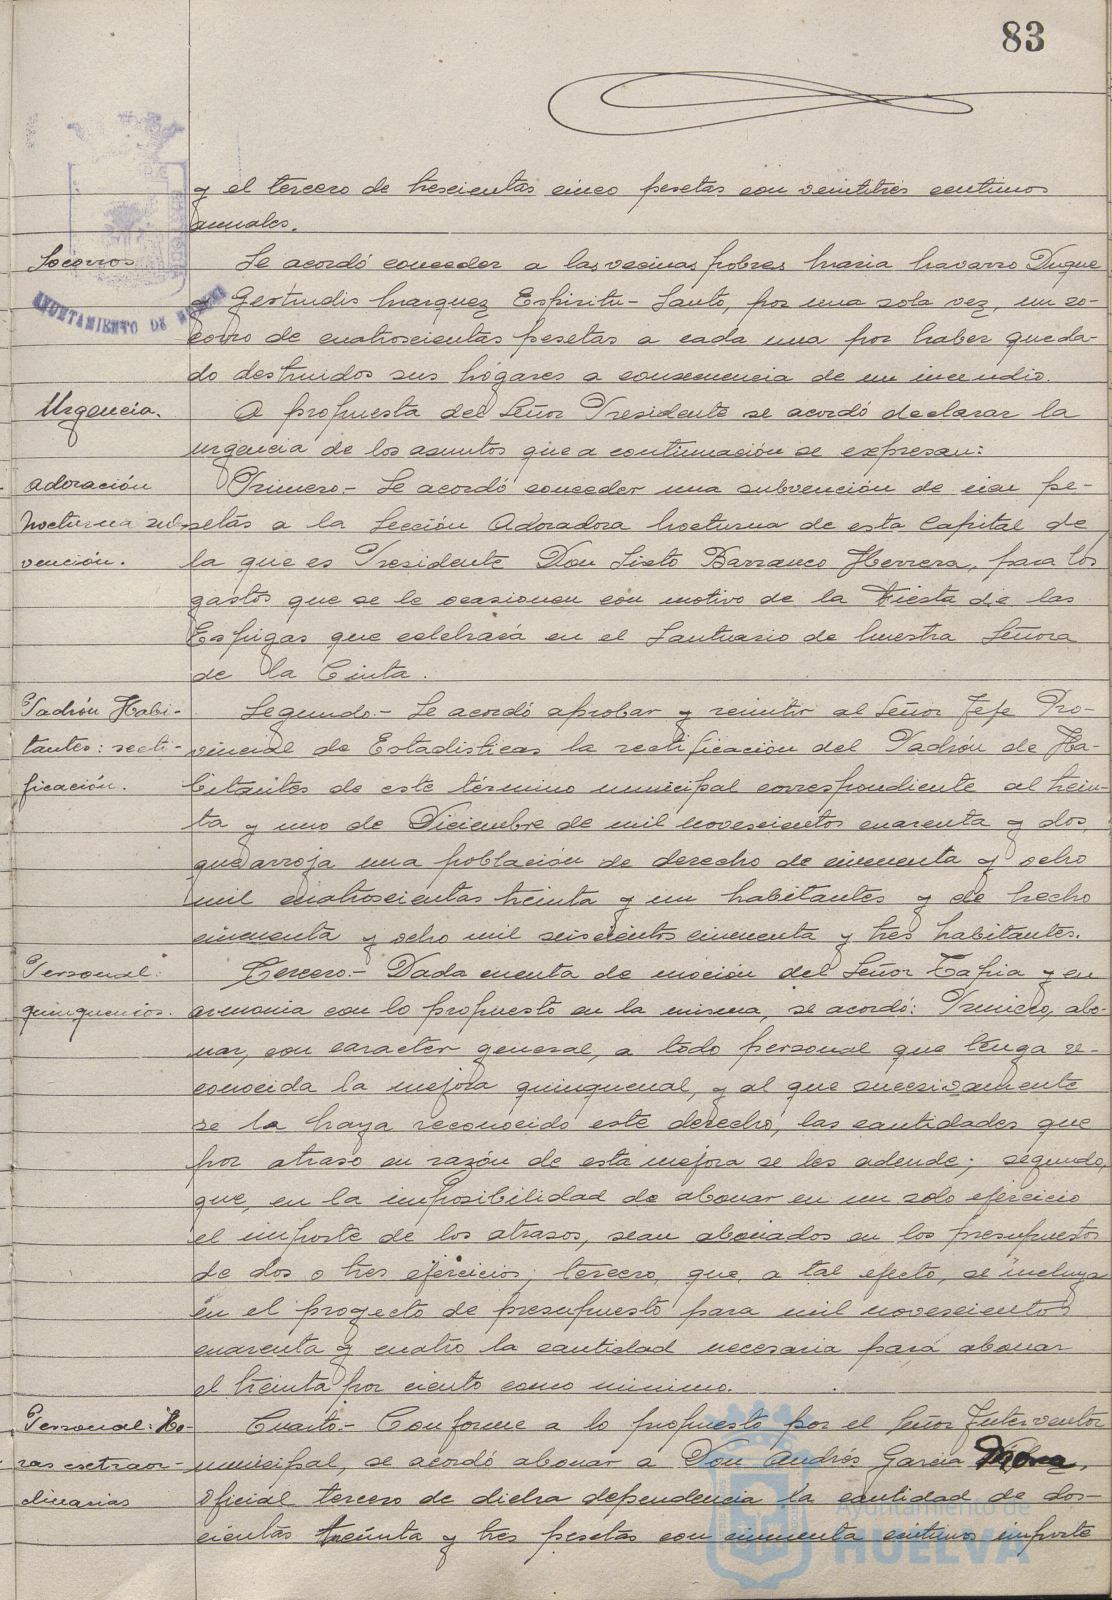 83
y el tercero de trescientas cinco pesetas con veintitres centimos
anuales.
Socorros
Se acordó conceder a las vecinas pobres Maria Navarro Duque
y Gertrudis Marquez Espiritu-Santo, por una sola vez, un so-
AYUNTAMIENTO DE HUELVA
corro de cuatrocientas pesetas a cada una por haber queda-
do destruidos sus hogares a consecuencia de un incendio.
Urgencia.
A propuesta del Señor Presidente se acordó declarar la
urgencia de los asuntos que a continuación se expresan:
Adoración
Primero.- Se acordó conceder una subvención de cien pe-
Nocturna sub-
setas a la Sección Adoradora Nocturna de esta Capital de
vención.
la que es Presidente Don Sixto Barranco Herrera, para los
gastos que se le ocasionen con motivo de la Fiesta de las
Espigas que celebrará en el Santuario de Nuestra Señora
de la Cinta.
Padrón Habi-
Segundo.- Se acordó aprobar y remitir al Señor Jefe Pro-
tantes: recti-
vincial de Estadisticas la rectificación del Padrón de Ha-
ficación.
bitantes de este término municipal correspondiente al trein-
ta y uno de Diciembre de mil novescientos cuarenta y dos,
que arroja una población de derecho de cincuenta y ocho
mil cuatroscientas treinta y un habitantes y de hecho
cincuenta y ocho mil seiscientos cincuenta y tres habitantes.
Personal:
Tercero.- Dada cuenta de moción del Señor Tapia y en
quinquenios.
armonia con lo propuesto en la misma, se acordó: Primero, abo-
nar, con caracter general, a todo personal que tenga re-
conocida la mejora quinquenal, y al que sucesivamente
se la haya reconocido este derecho, las cantidades que
por atraso en razón de esta mejora se les adeude; segundo,
que, en la imposibilidad de abonar en un solo ejercicio
el importe de los atrasos, sean abonados en los presupuestos
de dos o tres ejercicios; tercero, que, a tal efecto, se incluya
en el proyecto de presupuesto para mil novescientos
cuarenta y cuatro la cantidad necesaria para abonar
el treinta por ciento como minimo.
Personal: Ho-
Cuarto.- Conforme a lo propuesto por el Señor Interventor
ras extraor-
municipal, se acordó abonar a Don Andrés Garcia Mora,
dinarias
Oficial tercero de dicha dependencia la cantidad de dos-
cientas treinta y tres pesetas con cincuenta centimos importe
Ayuntamiento de
HUELVA